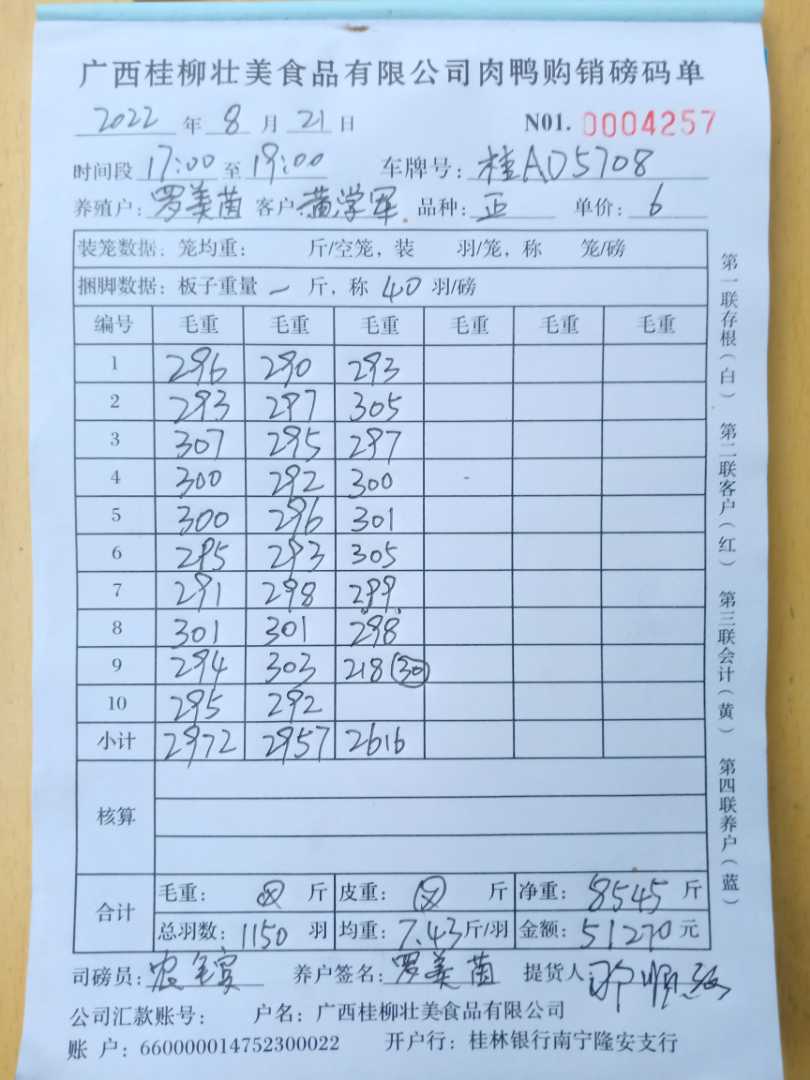 广西桂柳壮美食品有限公司肉鸭购销磅码单
2022 年 8 月 21 日 N01. 0004257
时间段 17:00 至 19:00 车牌号: 桂AD5708
养殖户: 罗美茵 客户: 黄学军 品种: 正 单价: 6
装笼数据: 笼均重: 斤/空笼, 装 羽/笼, 称 笼/磅
捆脚数据: 板子重量 一 斤, 称 40 羽/磅
编号 毛重 毛重 毛重 毛重 毛重 毛重
1 296 290 293
2 293 297 305
3 307 295 297
4 300 292 300
5 300 296 301
6 295 293 305
7 291 298 299
8 301 301 298
9 294 303 218 (30)
10 295 292
小计 2972 2957 2616
核算
合计 毛重: 斤 皮重: 斤 净重: 8545 斤
总羽数: 1150 羽 均重: 7.43 斤/羽 金额: 51270 元
司磅员: 养户签名: 罗美茵 提货人
公司汇款账号: 户名: 广西桂柳壮美食品有限公司
账 户: 660000014752300022 开户行: 桂林银行南宁隆安支行
第一联存根(白) 第二联客户(红) 第三联会计(黄) 第四联养户(蓝)